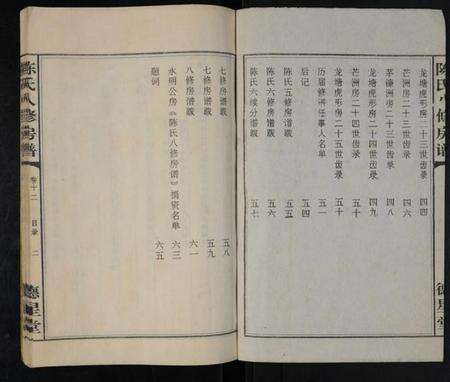 陈氏八修房谱
德星堂
龙塘虎形房二十三世齿录 四四
芒洲房二十三世齿录 四六
洲房二十三世齿录 四八
龙塘虎形房二十四世齿录 四九
芒洲房二十四世齿录 五十
龙塘虎形房二十五世齿录 五十
历届修谱任事人名单 五一
后记 五四
陈氏五修房谱跋 五五
陈氏六修房谱跋 五六
陈氏六续分谱跋 五七
七修房谱跋 五八
七修房谱跋 五九
八修房谱跋 六一
永明公房《陈氏八修房谱》捐资名单 六三
题词 六五
陈氏八修房谱
卷十二 目录 二
德星堂